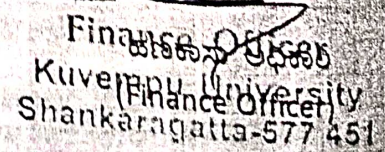 Finance Officer
ಹಣಕಾಸು ಅಧಿಕಾರಿ
Kuvempu University
(Finance Officer)
Shankaragatta-577 451